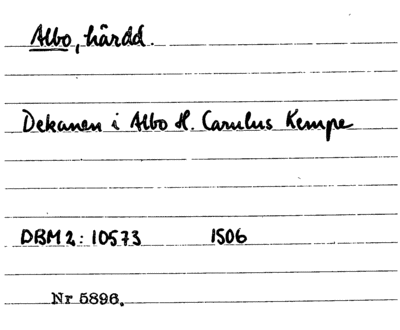 Albo, härdd.
Dekanen i Albo H. Carulus Kempe
DBM 2: 10573 1506
Nr 5896.